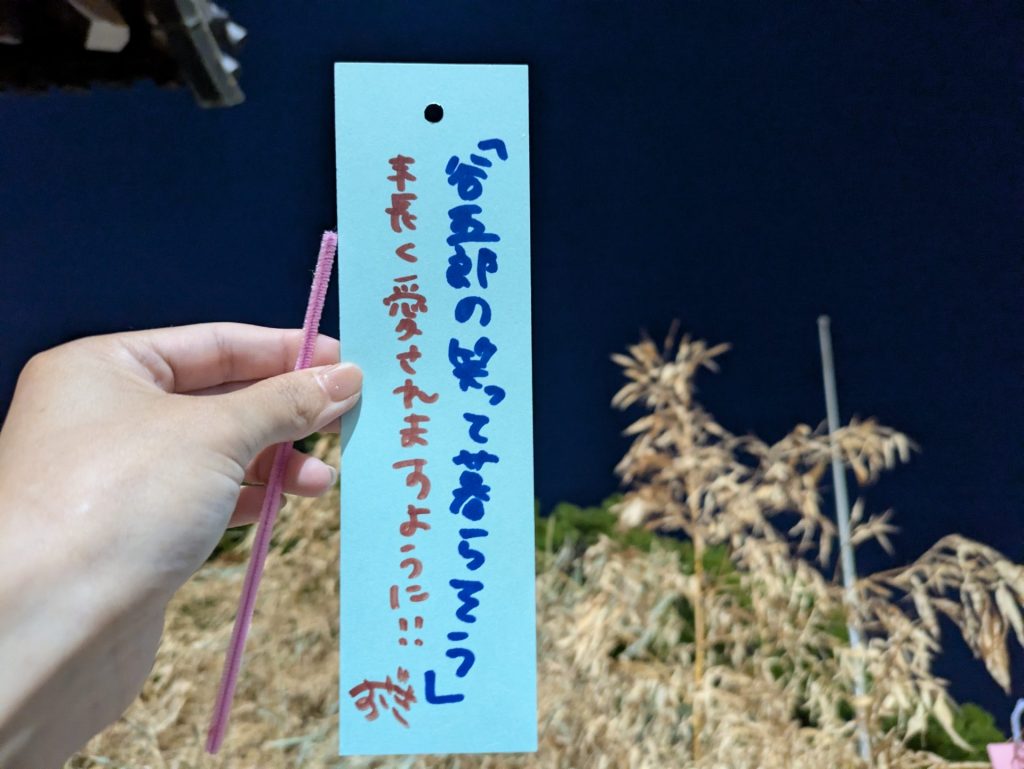 「谷五郎の笑って暮らそう」
末長く愛されますように!!